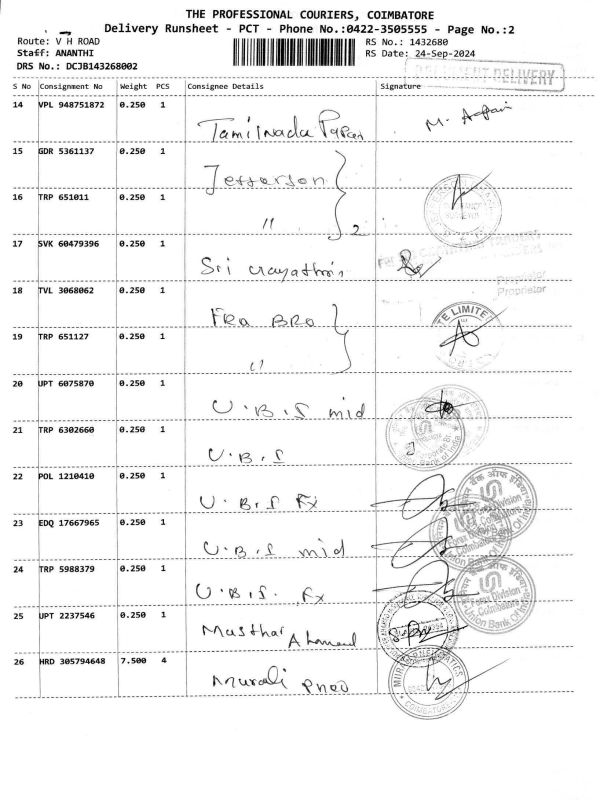 THE PROFESSIONAL COURIERS, COIMBATORE
Delivery Runsheet - PCT - Phone No.:0422-3505555 - Page No.:2
Route: V H ROAD
RS No.: 1432680
Staff: ANANTHI
RS Date: 24-Sep-2024
DRS No.: DCJB143268002
S No Consignment No Weight PCS Consignee Details Signature
14 VPL 948751872 0.250 1
Tamilnadu
15 GDR 5361137 0.250 1
Jefferson
16 TRP 651011 0.250 1
" 2
17 SVK 60479396 0.250 1
Sri
Proprietor
18 TVL 3068062 0.250 1
Fra Bro
TE LIMITE
19 TRP 651127 0.250 1
"
20 UPT 6075870 0.250 1
U.B.I mid
21 TRP 6302660 0.250 1
U.B.I
22 POL 1210410 0.250 1
U.B.I Fx
Forex Division
Coimbatore
Union Bank Of India
23 EDQ 17667965 0.250 1
U.B.I mid
24 TRP 5988379 0.250 1
U.B.I. Fx
Forex Division
Coimbatore
Union Bank Of India
25 UPT 2237546 0.250 1
Musthak Ahamed
26 HRD 305794648 7.500 4
Murali Pneo